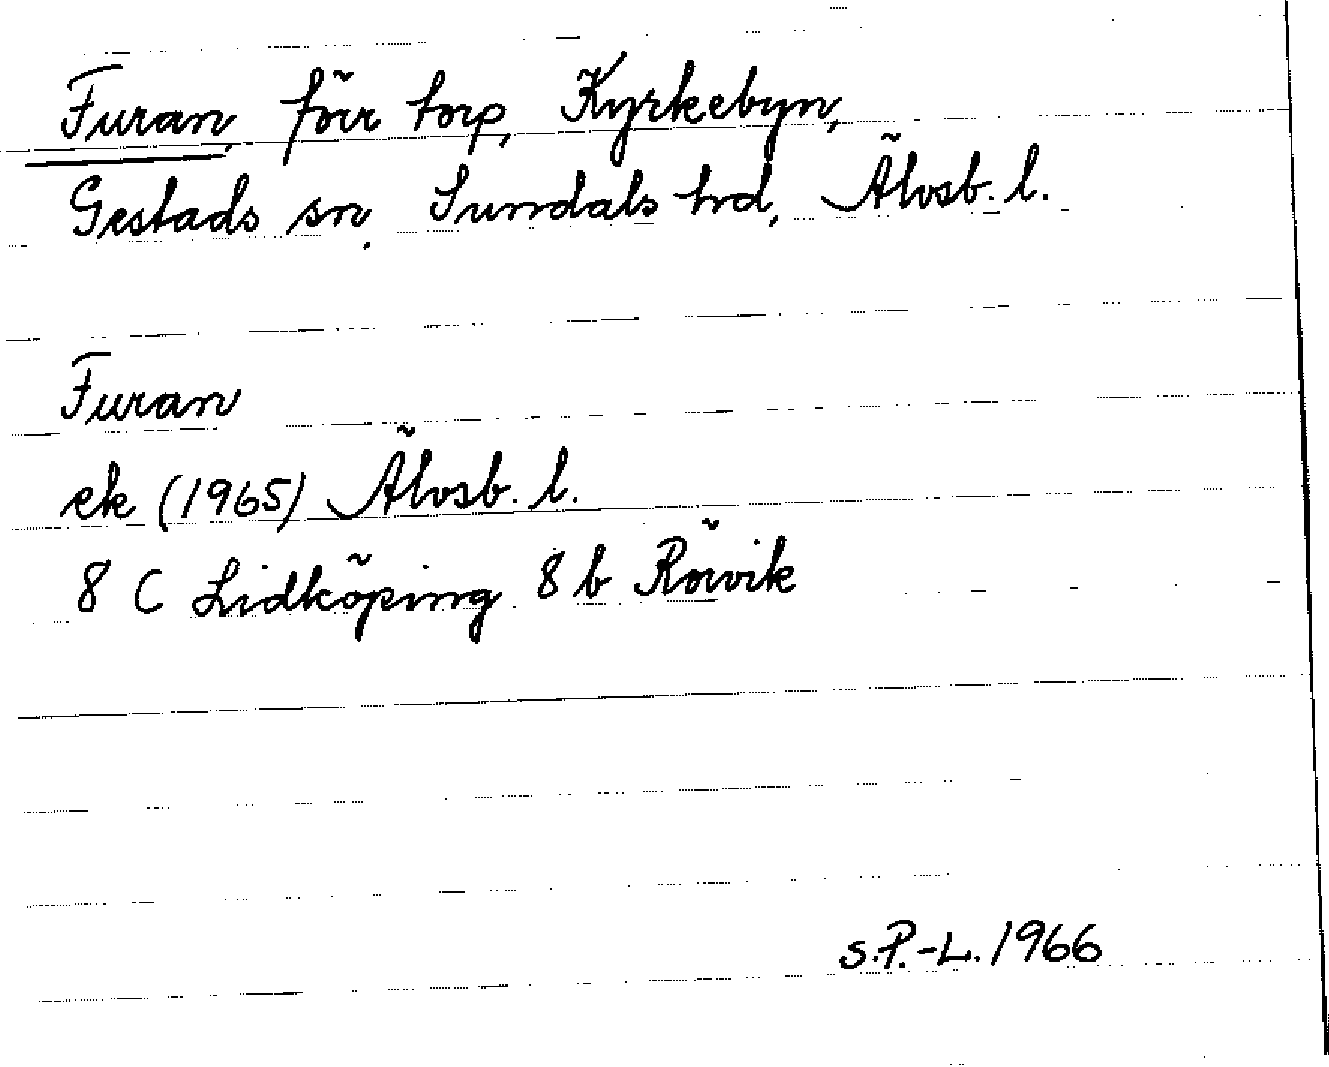 Furan, förr torp, Kyrkebyn,
Gestads sn, Sundals hd, Älvsb. l.
Furan
ek (1965) Älvsb. l.
8 C Lidköping 8 b Rörvik
S.P.-L. 1966